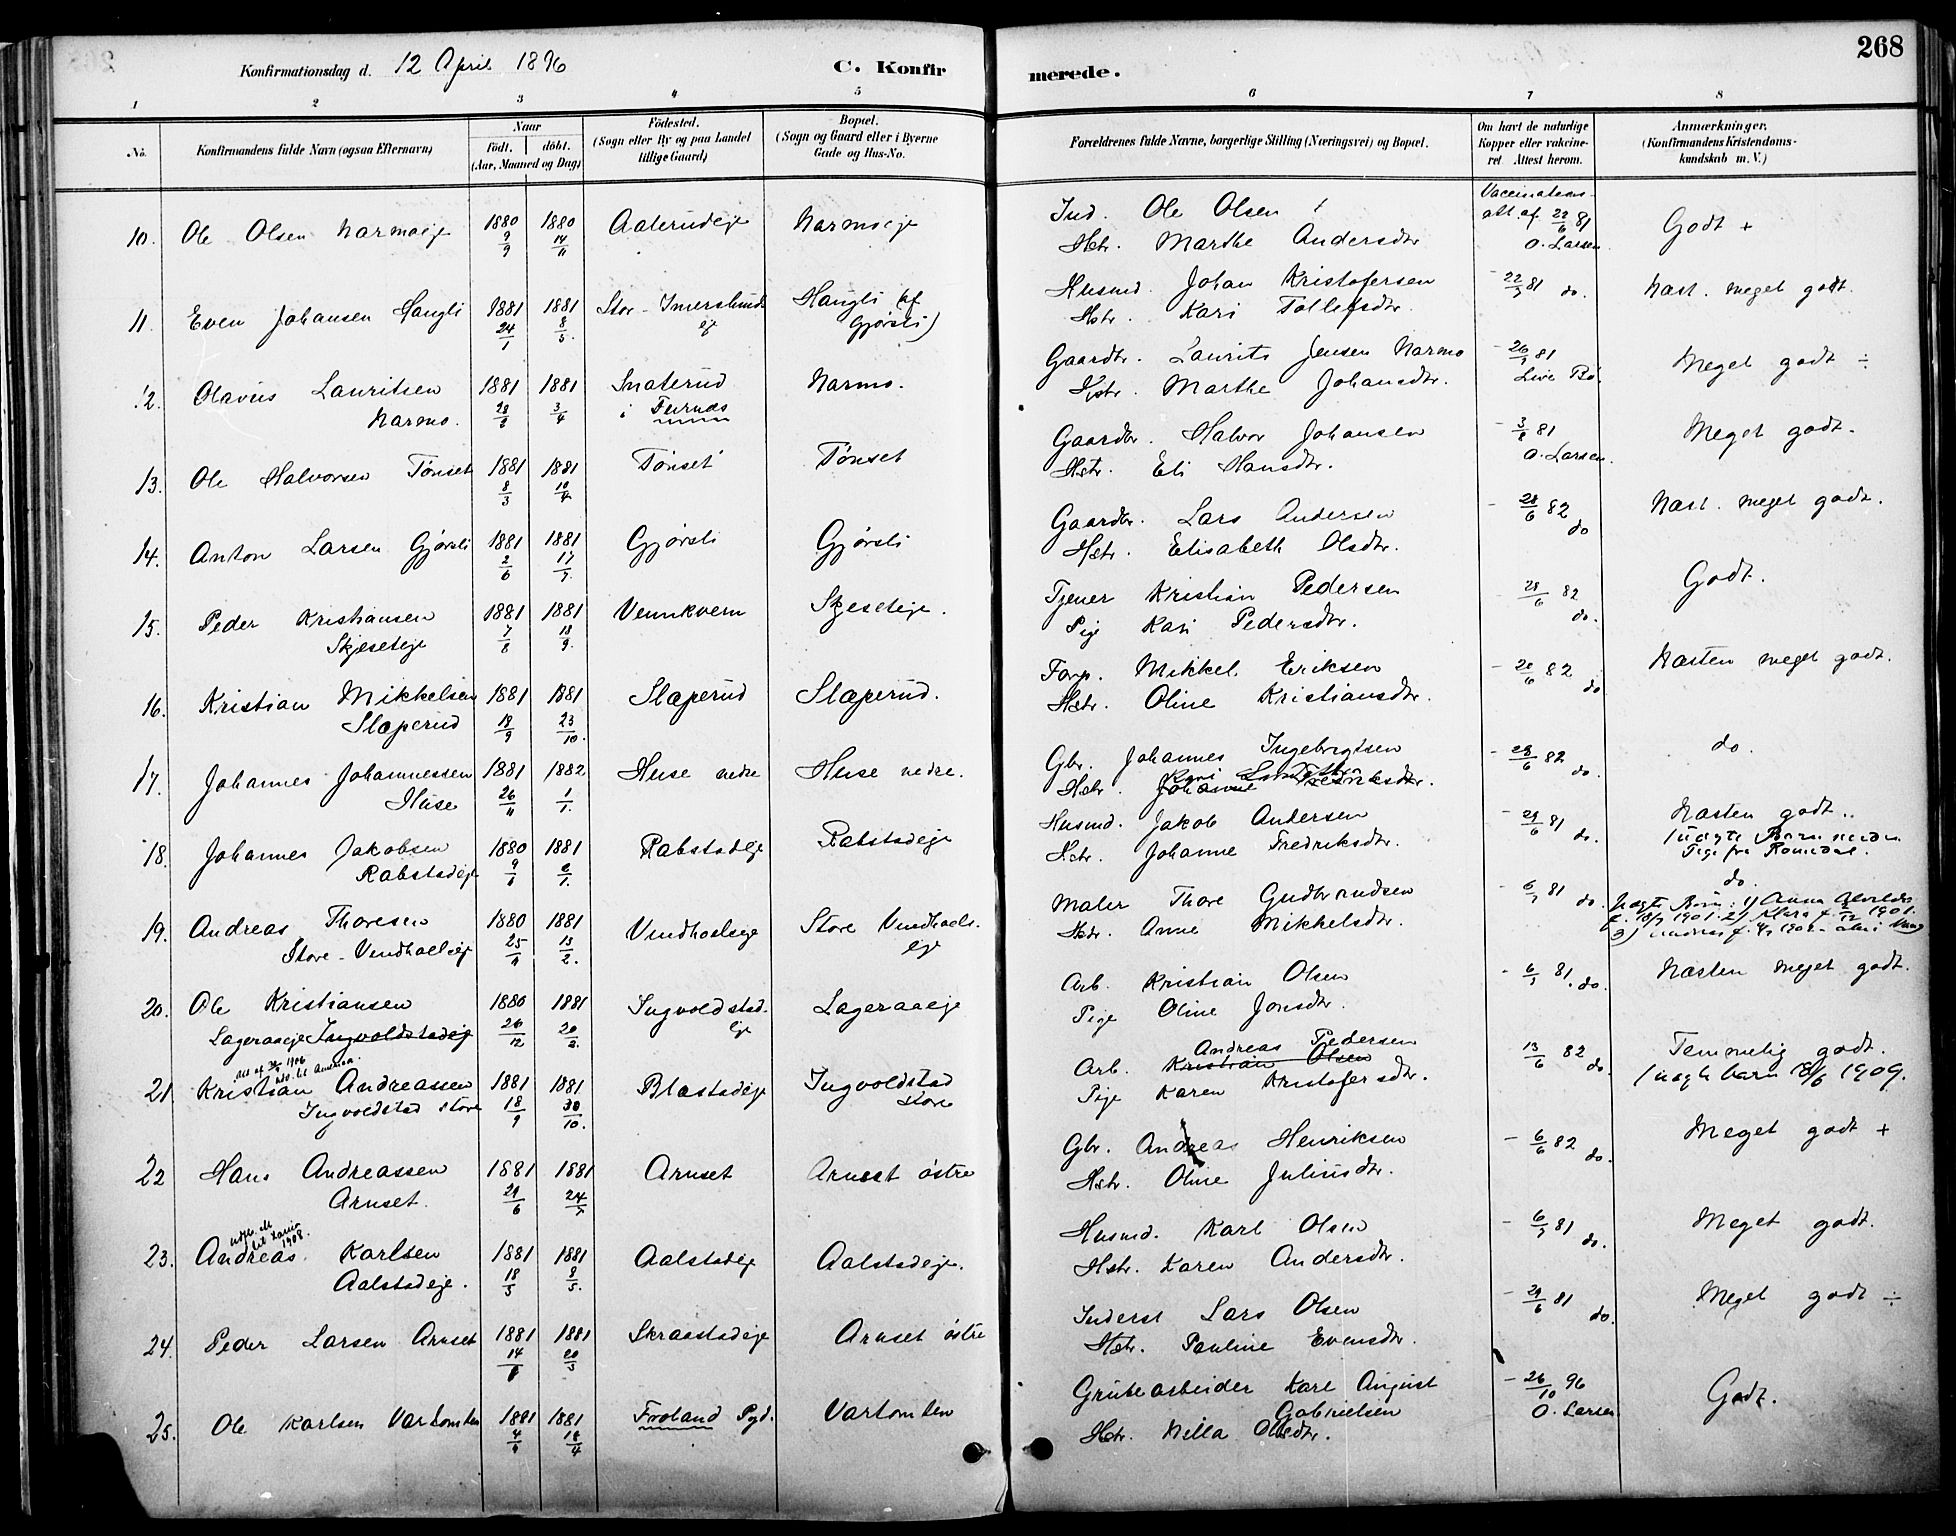 268
Konfirmationsdag d. 12 April 1896
C. Konfirmerede.
1 2 3 4 5 6 7 8
No.
Konfirmandens fulde Navn (ogsaa Efternavn)
Naar
födt. döbt.
(Aar, Maaned og Dag)
Födested.
(Sogn eller By og paa Landet
tillige Gaard)
Bopæl.
(Sogn og Gaard eller i Byerne
Gade og Hus-No.
Forældrenes fulde Navne, borgerlige Stilling (Næringsvei) og Bopæl.
Om havt de naturlige
Kopper eller vakcine-
ret Attest herom.
Anmærkninger.
(Konfirmandens Kristendoms-
kundskab m. V.)
10. Ole Olsen Narmoeje 1880 9/9 1880 14/11 Aalerudeje Narmoeje
Ind. Ole Olsen
Hstr. Marthe Andersdtr
Vaccinations-
att af 22/6 81
O. Larsen
Godt +
11. Even Johansen Haugli 1881 24/1 1881 8/5 Stor-Imerslunds
ej
Haugli (af
Gjørsli)
Husmd. Johan Kristofersen
Hstr. Kari Tollefsdtr.
- 22/7 81 do.
Næst. meget godt.
12. Olavus Lauritsen
Narmo.
1881 28/2 1881 3/4 Snaterud
i Furnæs
Narmo.
Gaardbr. Laurits Jensen Narmo
Hstr. Marthe Johansdtr.
- 26/7 81
Meget godt ÷
13. Ole Halvorsen Tönset 1881 8/3 1881 10/4 Tönset Tönset
Gaardbr. Halvor Johansen
Hstr. Eli Hansdtr.
- 3/8 81
O. Larsen.
Meget godt.
14. Anton Larsen Gjørsli 1881 2/6 1881 17/7 Gjørsli Gjørsli
Gaardbr. Lars Andersen
Hstr. Elisabeth Olsdtr.
- 28/6 82
do
Næst. meget godt.
15. Peder Kristiansen
Skjeseteje
1881 7/8 1881 18/9 Vennkvern Skjeseteje.
Tjener Kristian Pedersen
Pige Kari Pedersdtr.
28/6 82
do.
Godt.
16. Kristian Mikkelsen
Slæperud
1881 18/9 1881 23/10. Slæperud Slæperud.
Forp. Mikkel Eriksen
Hstr. Oline Kristiansdtr.
- 28/6 82
do
Næsten meget godt.
17. Johannes Johannessen
Huse
1881 26/11 1882 1/1. Huse nedre Huse nedre.
Gbr. Johannes Ingebrigtsen
Kari
Hstr. Johanne Fredriksdtr.
- 28/6 82
do.
do.
18. Johannes Jakobsen
Rabstadeje
1880 9/6 1881 6/1. Rabstadeje Rabstadeje
Husmd. Jakob Andersen
Hstr. Johanne Fredriksdtr.
- 29/6 81
do.
Næsten godt..
Pige fra Romedal.
19. Andreas Thoresen
Store-Vendkoeleje
1880 25/11 1881 13/2. Store
eje
Maler Thore Gudbrandsen
Hstr. Anne Mikkelsdtr.
- 6/7 81 do.
do.
20. Ole Kristiansen
Lageraaeje Ingvoldstadeje
1880 26/12 1881 20/2. Ingvoldstad-
eje
Lageraaeje
Arb. Kristian Olsen
Pige Oline Jonsdtr.
- 6/7 81. do.
Næsten meget godt.
1906
til Amerika.
21 Kristian Andreassen
Ingvoldstad store
1881 18/9 1881 30/10. Blæstadeje Ingvoldstad
store
Andreas Pedersen
Arb. Kristian Olsen
Pige Karen Kristofersdtr.
13/6 82 do.
Temmelig godt.
1 uægte barn 1909.
22 Hans Andreassen
Arnset.
1881 29/6 1881 24/7 Arnset Arnset östre
Gbr. Andreas Henriksen
Hstr. Oline Juliusdtr.
- 6/6 82 do.
Meget godt +
1908.
23. Andreas Karlsen
Aalstadeje.
1881 18/3 1881 8/5. Aalstadeje Aalstadeje.
Husmd. Karl Olsen
Hstr. Karen Andersdtr.
- 6/7 81
do.
Meget godt.
24. Peder Larsen Arnset 1881 1881 20/3 Skraastadeje Arnset östre
Inderst Lars Olsen
Hstr. Pauline Evensdtr.
- 29/6 81
do.
Meget godt ÷
25. Ole Karlsen Vartomten 1881 1881 18/4 Froland Pgd. Vartomten
Grubearbeider Karl August
Gabrielsen
Hstr. Nilla Olsdtr.
- 26/10 96
O. Larsen
Godt.